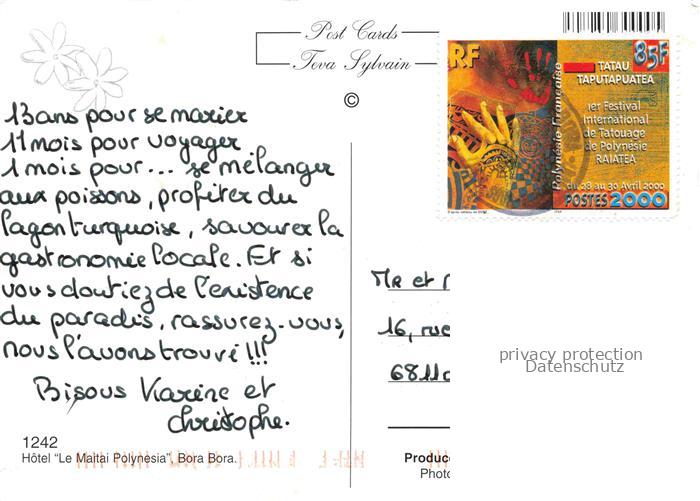 Post Cards
Tova Sylvain
©
RF
85F
TATAU
TAPUTAPUATEA
1er Festival
International
de Tatouage
de Polynésie
RAIATEA
du 28 au 30 Avril 2000
POSTES 2000
Polynésie Française
13 ans pour se marier
11 mois pour voyager.
1 mois pour... se mélanger
aux poissons, profiter du
lagon turquoise, savourer la
gastronomie locale. Et si
vous doutiez de l'existence
du paradis, rassurez-vous,
nous l'avons trouvé !!!
Bisous Karine et
Christophe.
Mr et
16, rue
6811
privacy protection
Datenschutz
1242
Hôtel "Le Maitai Polynesia", Bora Bora.
Produc
Photo